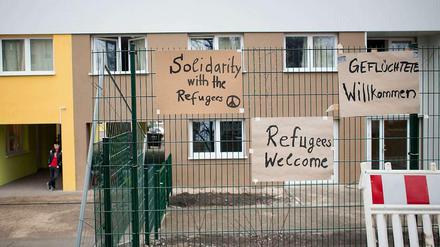 Solidarity
with the
Refugees
GEFLÜCHTETE
Willkommen
Refugees
Welcome